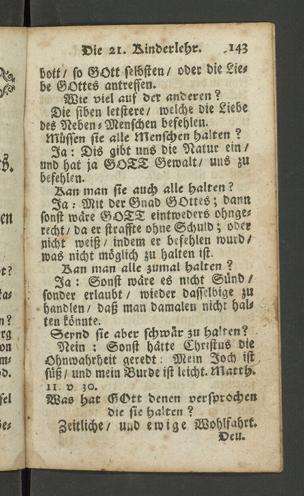 Die 21. Kinderlehr. 143
bott/ so GOtt selbsten/ oder die Lie-
be GOttes antreffen.
Wie viel auf der anderen?
Die siben letstere/ welche die Liebe
des Neben-Menschen befehlen.
Müssen sie alle Menschen halten?
Ja: Dis gibt uns die Natur ein/
und hat ja GOTT Gewalt/ uns zu
befehlen.
Kan man sie auch alle halten?
Ja: Mit der Gnad GOttes; dann
sonst wäre GOTT eintweders ohnge-
recht/ da er straffte ohne Schuld; oder
nicht weiß/ indem er befehlen wurd/
was nicht möglich zu halten ist.
Kan man alle zumal halten?
Ja: Sonst wäre es nicht Sünd/
sonder erlaubt/ wieder dasselbige zu
handlen/ daß man damalen nicht hal-
ten könnte.
Seynd sie aber schwär zu halten?
Nein: Sonst hätte Christus die
Ohnwahrheit geredt: Mein Joch ist
süß/ und mein Burde ist leicht. Matth.
11. v. 30.
Was hat GOtt denen versprochen
die sie halten?
Zeitliche/ und ewige Wohlfahrt.
Deu.